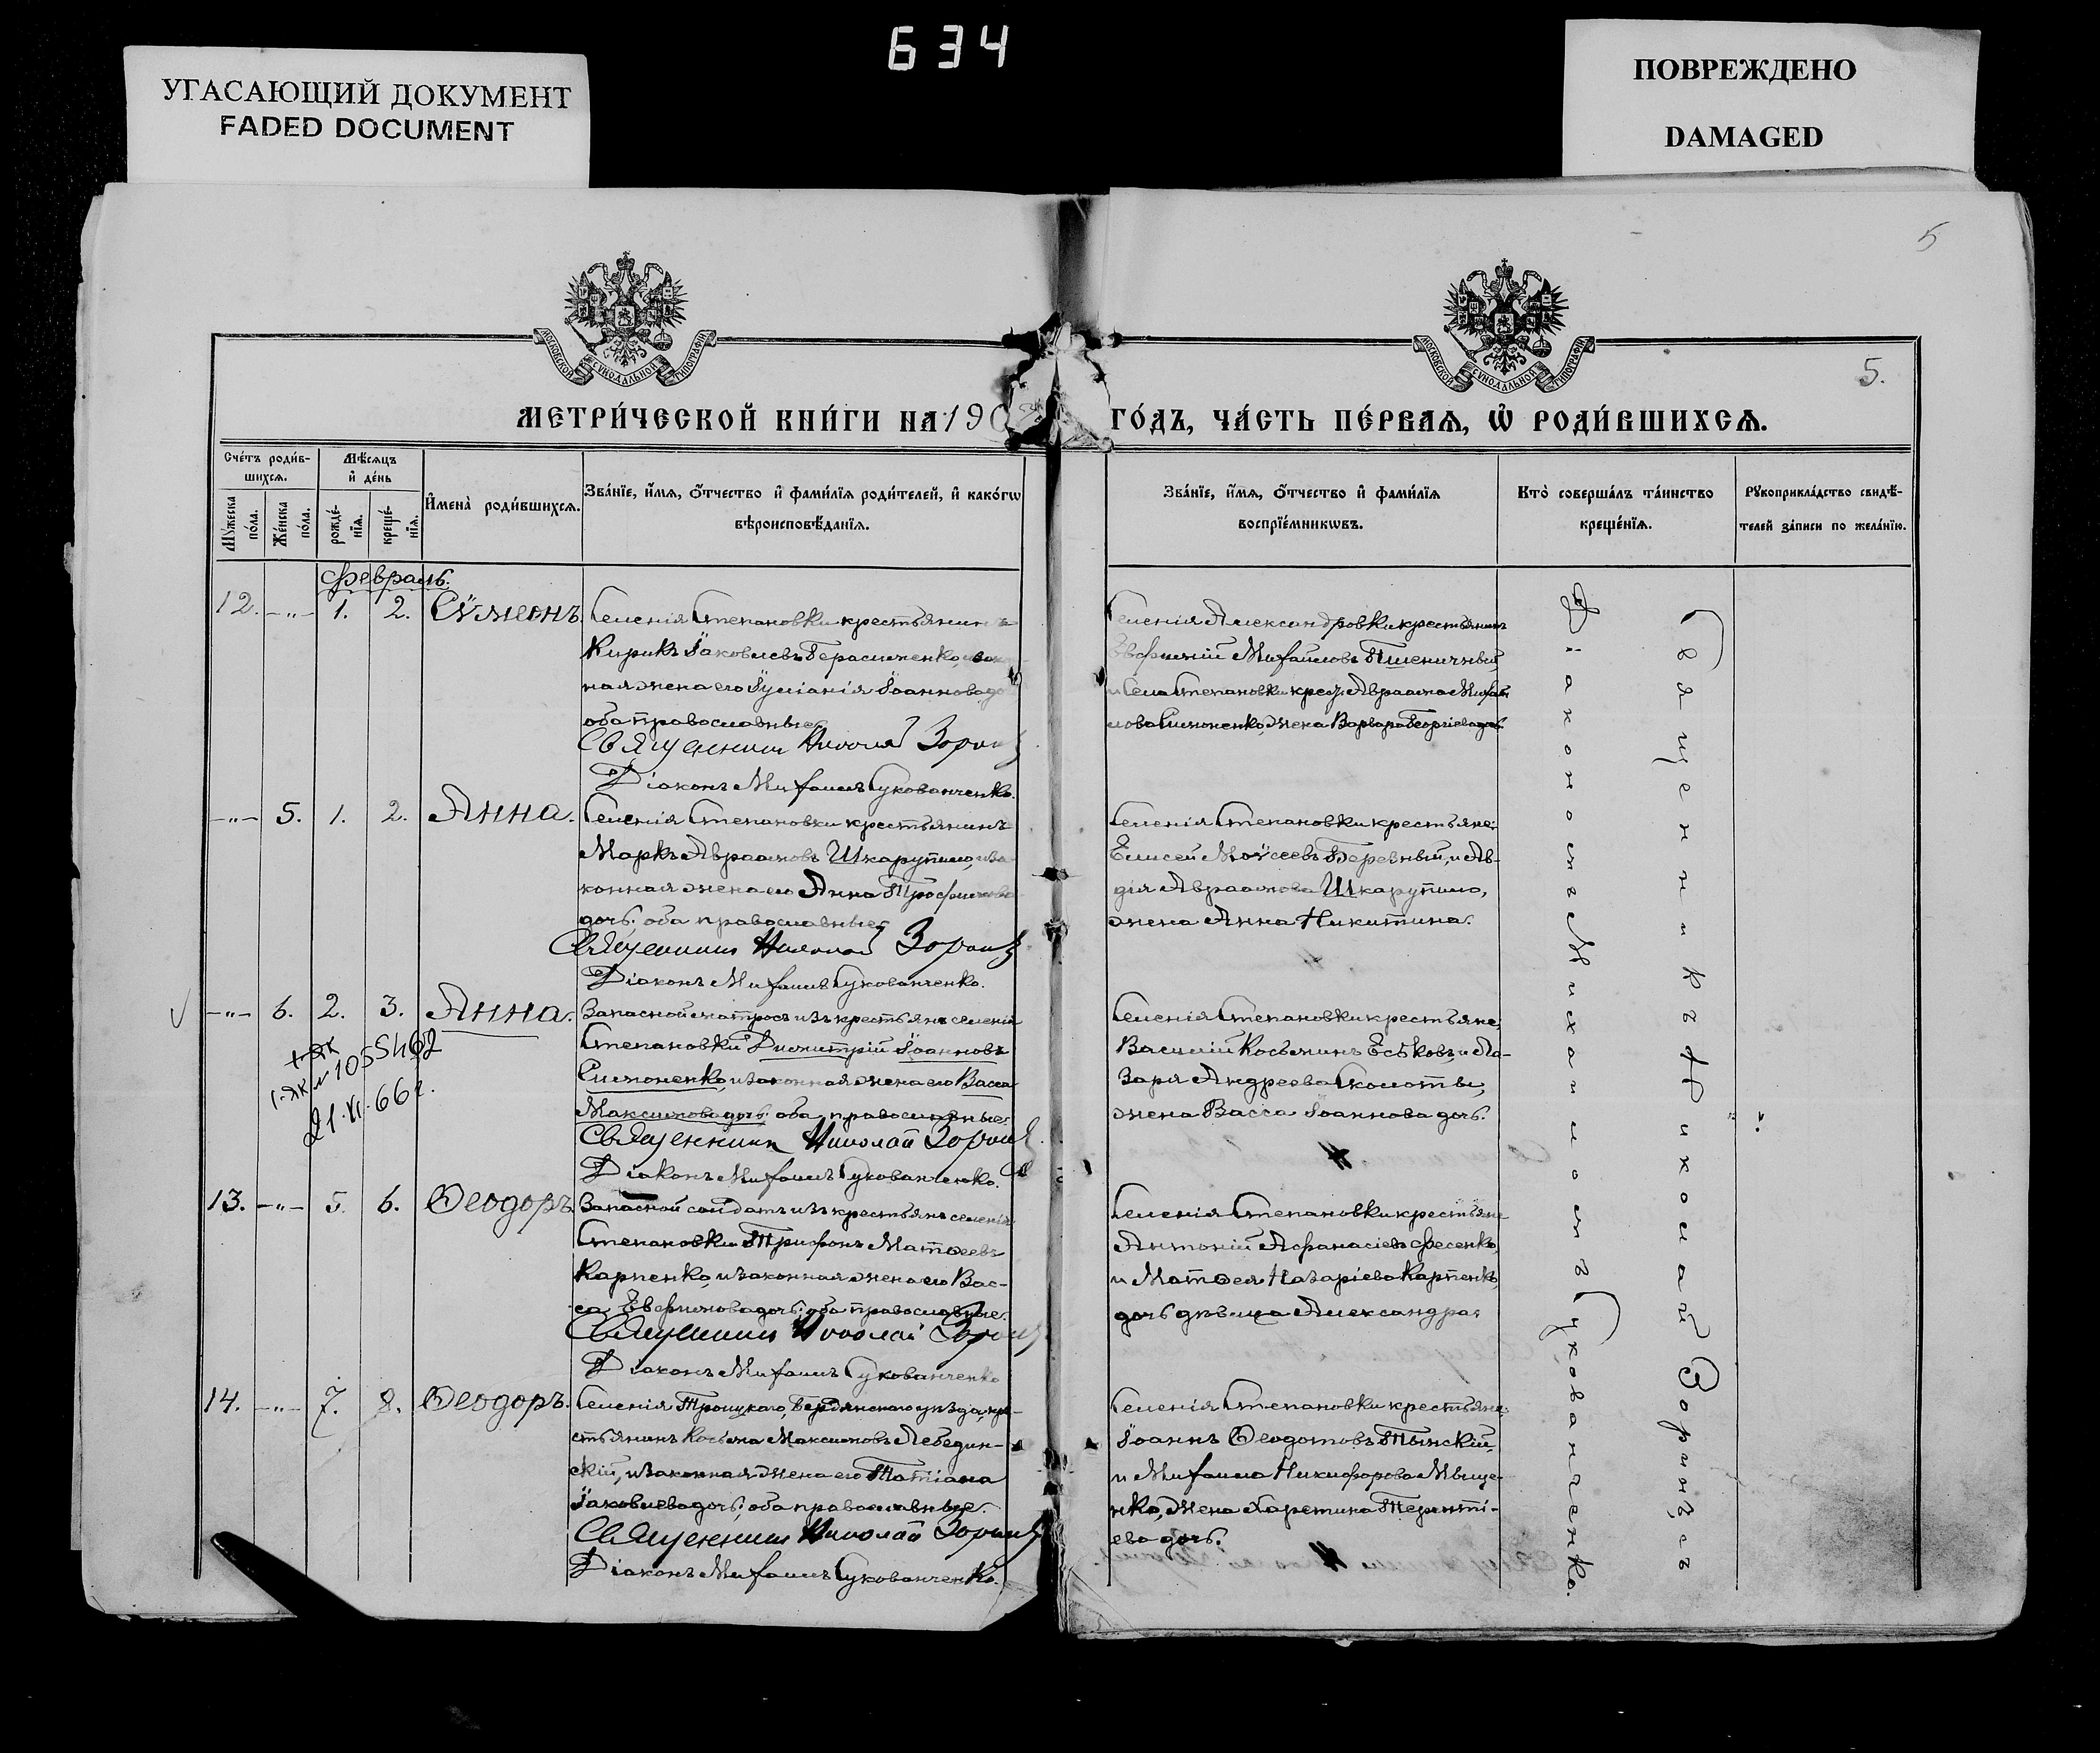 634
УГАСАЮЩИЙ ДОКУМЕНТ
FADED DOCUMENT
ПОВРЕЖДЕНО
DAMAGED
5
5.
МОСКОВСКОЙ СѴНОДАЛЬНОЙ ТИПОГРАФІИ
МОСКОВСКОЙ СѴНОДАЛЬНОЙ ТИПОГРАФІИ
МЕТРИ́ЧЕСКОЙ КНИ́ГИ НА 190
ГО́ДЪ, ЧА́СТЬ ПЕ́РВАѦ, Ѽ РОДИ́ВШИХСѦ.
Сче́тъ роди́в-
шихсѧ.
Мꙋ́жеска
по́ла.
Же́нска
по́ла.
Мѣ́сѧцъ
и҆ де́нь
рожде́-
нїѧ.
креще́-
нїѧ.
И҆мена̀ роди́вшихсѧ.
Зва́нїе, и҆́мѧ, ѻ҆́тчество и҆ фами́лїѧ роди́телей, и҆ како́гѡ
вѣроисповѣ́данїѧ.
Зва́нїе, и҆́мѧ, ѻ҆́тчество и҆ фами́лїѧ
воспрїе́мникѡвъ.
Кто̀ соверша́лъ та́инство
креще́нїѧ.
Рꙋкоприкла́дство свидѣ́-
телей за́писи по жела́нїю.
Февраль.
12. -"- 1. 2. Сѵмеонъ.
Селенія Степановки крестьянинъ
Кирикъ Іаковлевъ Герасименко, и закон
ная жена его Іуліанія Іоаннова до
оба православные
Священникъ Николай Зоринъ
Діаконъ Михаилъ Сукованченко.
Селенія Александровки крестьянинъ
Евфимій Михайловъ Пшеничный
и Села Степановки крест. Авраама Михай
лова Симоненко, жена Варвара Георгіева дочь
-"- 5. 1. 2. Анна.
Селенія Степановки крестьянинъ
Маркъ Авраамовъ Шкарупило, и за-
конная жена его Анна Трофимова
дочь; оба православные
Священникъ Николай Зоринъ
Діаконъ Михаилъ Сукованченко.
Селенія Степановки крестьяне:
Елисей Моѵсеевъ Деревный, и Ав-
дія Авраамова Шкарупило,
жена Анна Никитина.
-"- 6. 2. 3. Анна.
21.VI.66г.
Запасной матросъ изъ крестьянъ селенія
Степановки Димитрій Іоанновъ
Симоненко, и законная жена его Васса
Максимова дочь; оба православные.
Священникъ Николай Зоринъ
Діаконъ Михаилъ Сукованченко.
Селенія Степановки крестьяне;
Василій Косьминъ Еськовъ, и Ла-
заря Андреева Сколоты,
жена Васса Іоаннова дочь.
13. -"- 5. 6. Ѳеодоръ.
Запасной солдатъ изъ крестьянъ селенія
Степановки Трифонъ Матѳеевъ
Карпенко, и законная жена его Вас-
са Евфимова дочь; оба православные.
Священникъ Николай Зоринъ
Діаконъ Михаилъ Сукованченко
Селенія Степановки крестьяне
Антоній Афанасіевъ Фесенко,
и Матѳея Назаріева Карпенко,
дочь дѣвица Александра.
14. -"- 7. 8. Ѳеодоръ.
Селенія Троицкаго, Бердянскаго уѣзда, кре-
стьянинъ Косьма Максимовъ Лебедин-
скій, и законная жена его Татіана
Іаковлева дочь; оба православные.
Священникъ Николай Зоринъ
Діаконъ Михаилъ Сукованченко.
Селенія Степановки крестьяне:
Іоаннъ Ѳеодотовъ Тынскій,
и Михаила Никифорова Мыще-
нко, жена Харетина Теренті-
ева дочь.
Священникъ Николай Зоринъ съ
Діакономъ Михаиломъ Сукованченко.